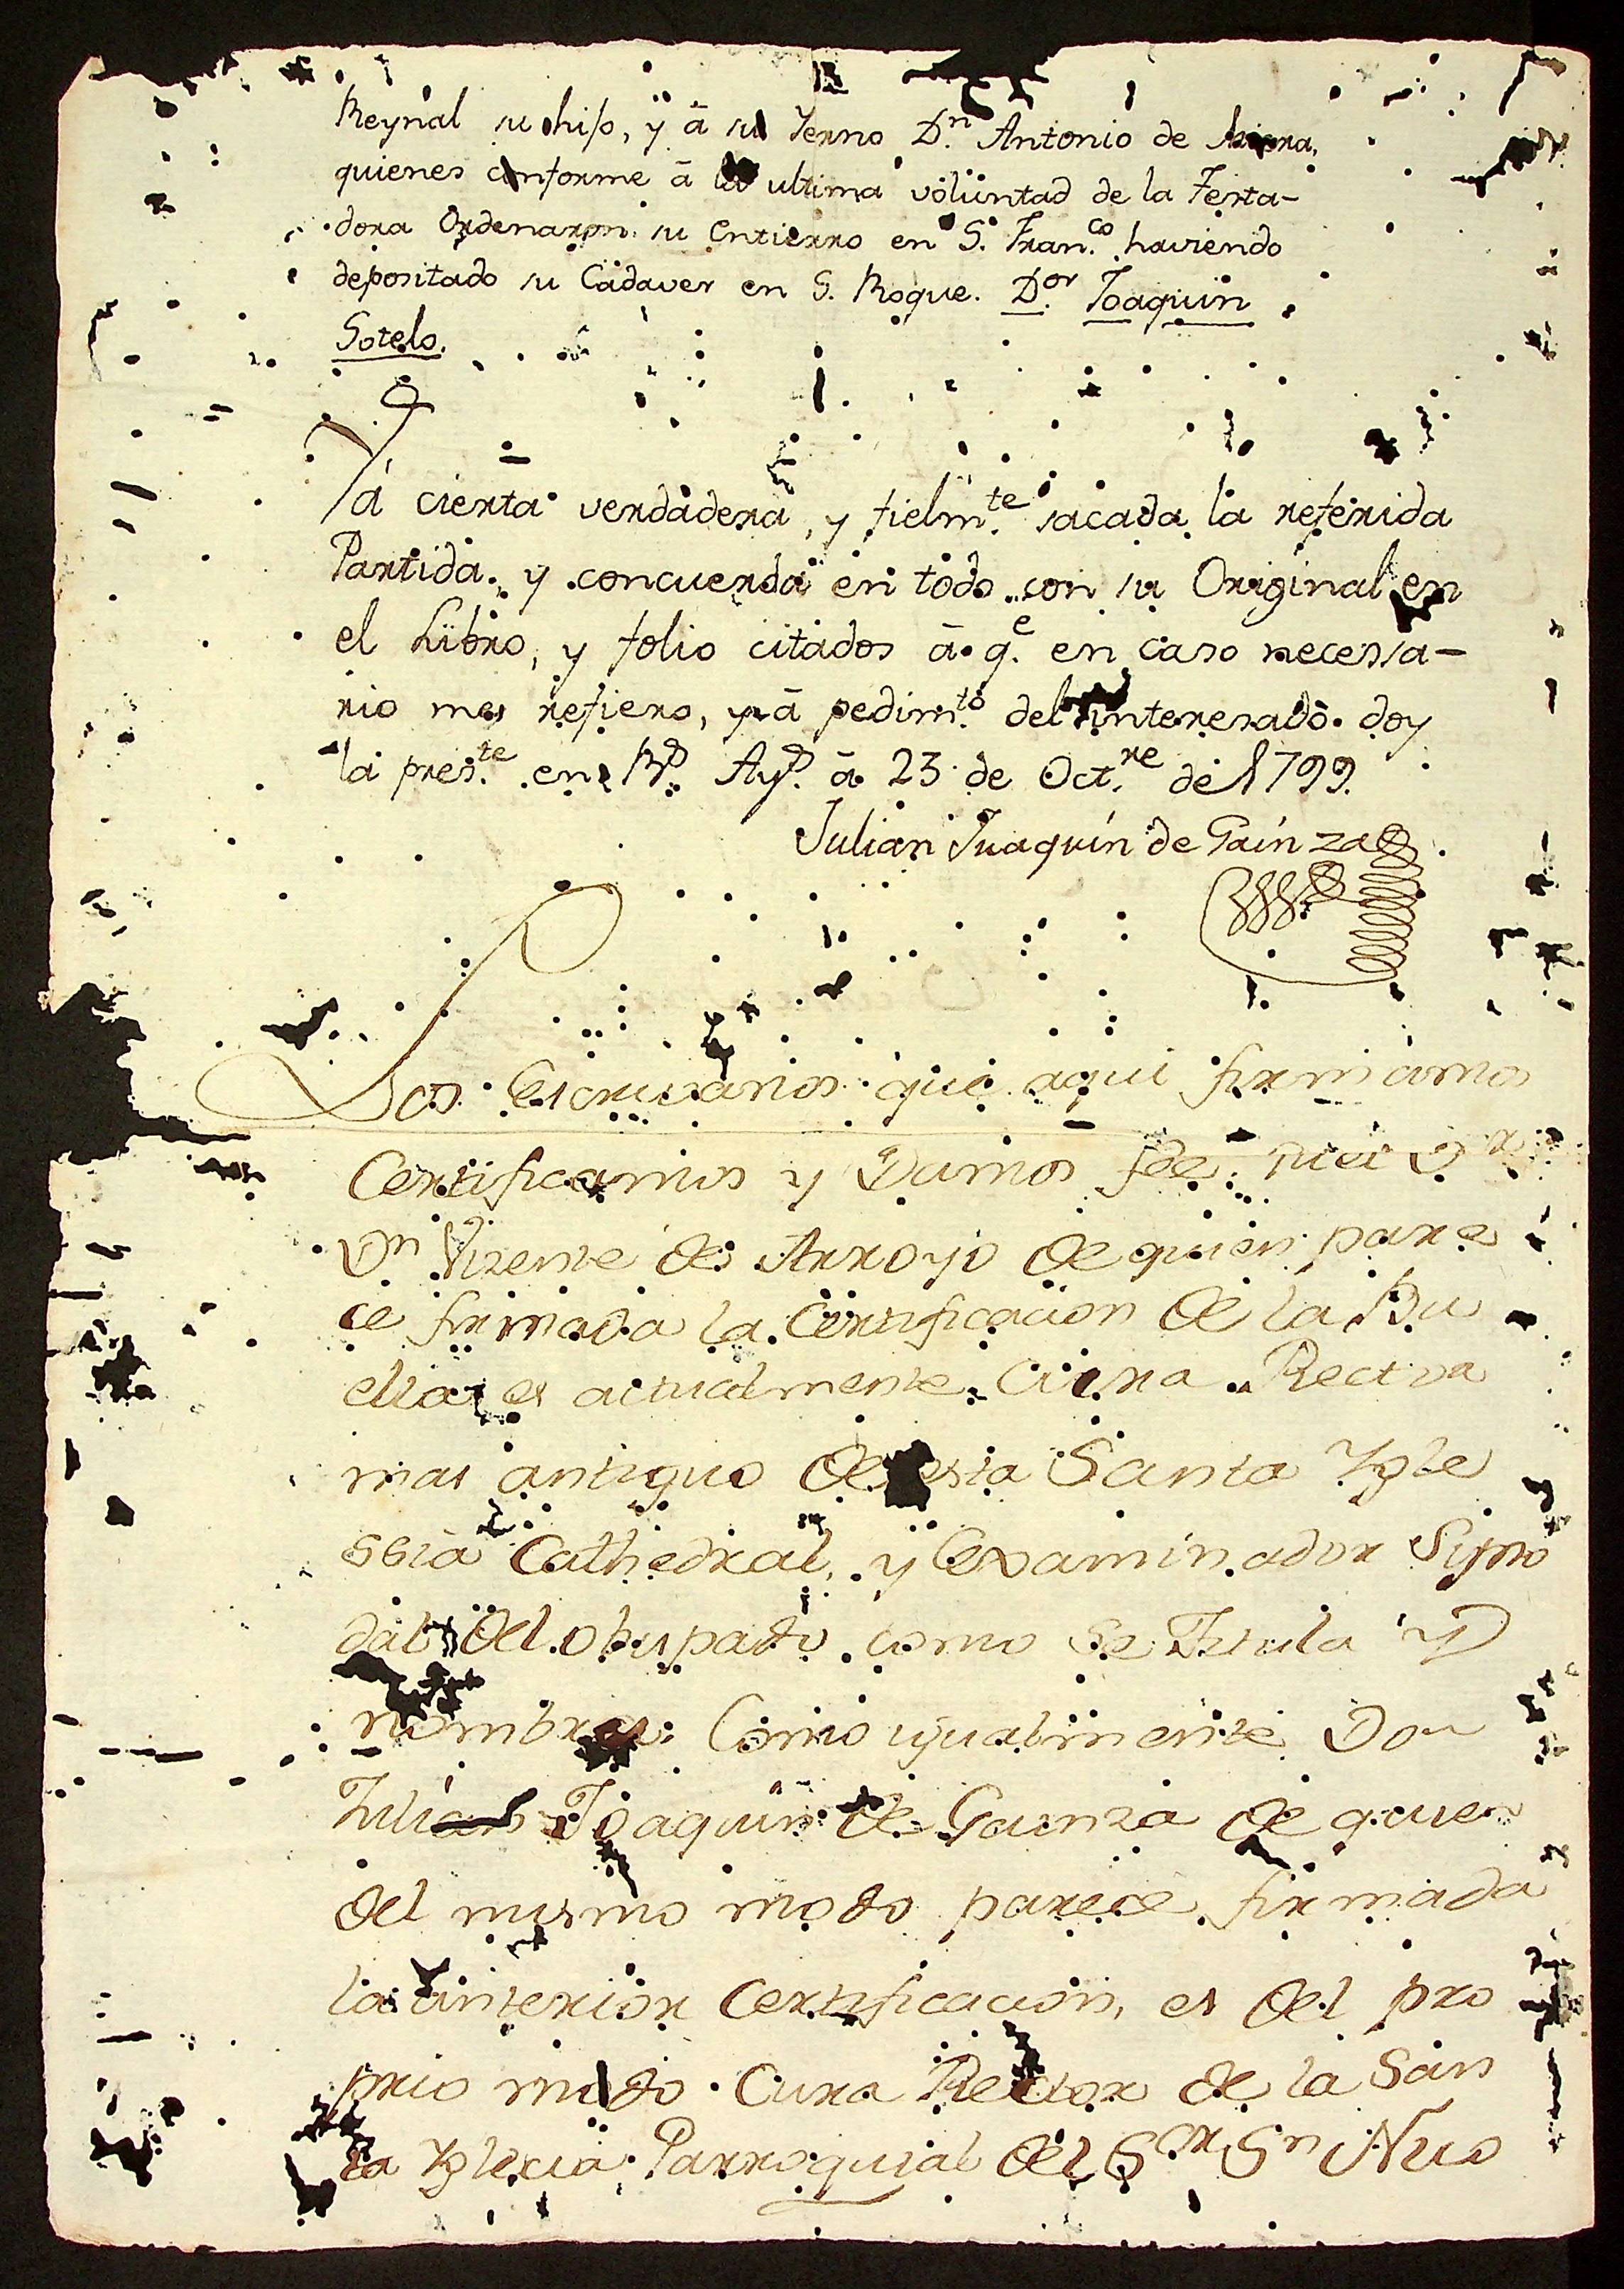 Reynal su hijo, y â su Yerno Dn. Antonio de
quienes conforme â la ultima voluntad de la Testa-
dora Ordenaron su entierro en S. Franco. haviendo
depositado su Cadaver en S. Roque. Dor. Joaquin
Sotelo.
Vá cierta verdadera, y fielmte. sacada la referida
Partida, y concuerda en todo con su Original en
el Libro, y folio citados â qe. en caso necessa-
rio me refiero, y â pedimto. del interesado doy
la preste. en Bs. Ays. â 23 de Octre. de 1799.
Julian Juaquin de Gaínza
Los Escrivanos que aqui firmamos
Certificamos y Damos fee, que el Dr
Dn Vizente de Arroyo de quien pare
ce firmada la Certificacion de la Bu
elta, es actualmente Cura Rector
mas antiguo de esta Santa Ygle
ssia Cathedral, y Examinador Sijno
dal del obispado, como se Titula y
nombra: Como igualmente Don
Julian Joaquin de Gainza de quien
del mismo modo parece firmada
la anterior Certificacion, es del pro
prio modo Cura Rector de la San
ta Yglecia Parroquial del Sor Sn Nico